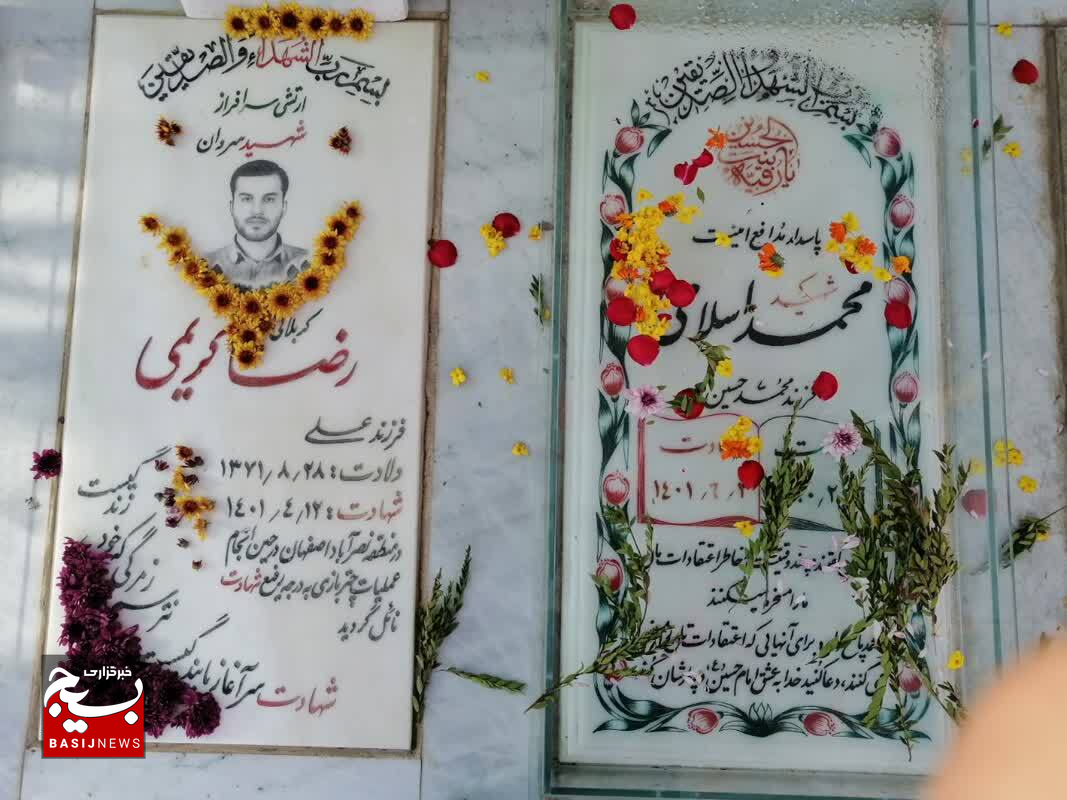 بسم رب الشهداء والصدیقین
ارتشی سرافراز
شهید سروان
کربلائی
رضا کریمی
فرزند علی
ولادت: ۱۳۷۱٫۸٫۲۸
شهادت: ۱۴۰۱٫۴٫۱۲
در منطقه نصرآباد اصفهان در حین انجام
عملیات چتربازی به درجه رفیع شهادت
نائل گردید
زندگیست
زندگی خود
نترس
شهادت سرآغاز پایندگیست
بسم رب الشهداء والصدیقین
یا رقیه بنت الحسین
پاسدار مدافع امنیت
شهید
محمد اسلامی
فرزند محمدحسین
۱۴۰۱٫۶٫
خاطر اعتقادات ما
ما را مسخره میکنند
برای آنهایی که اعتقادات
کنند، دعا کنید خدا به عشق امام حسین (ع) دچارشان کند
خبرگزاری
بسیج
BASIJNEWS